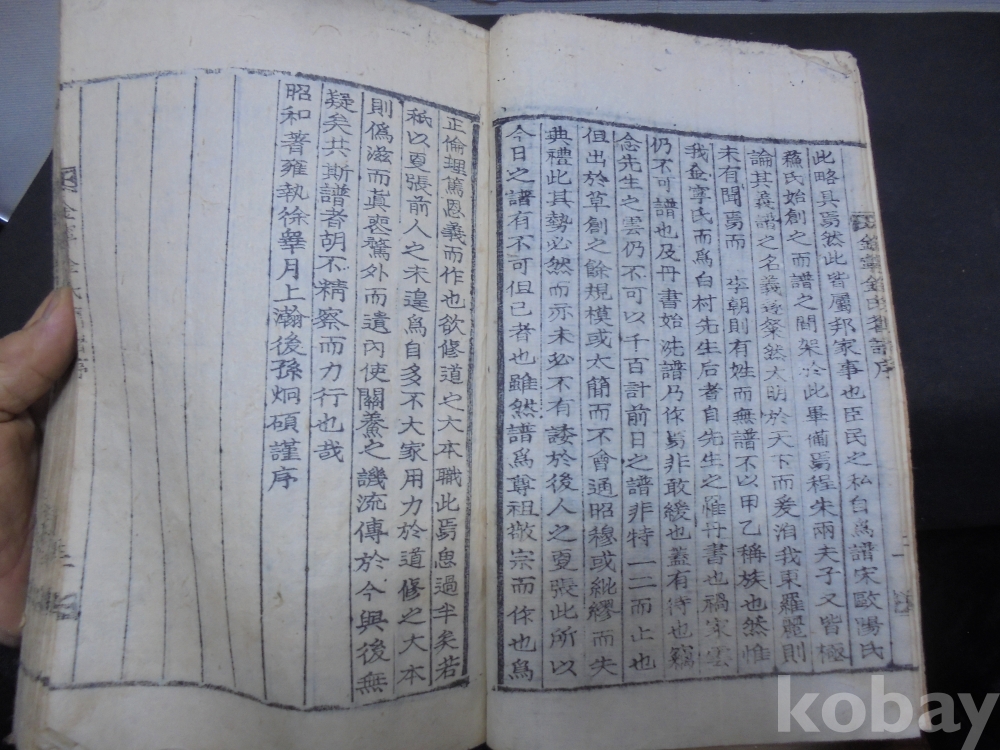 金寧金氏舊譜序
此略具焉然此皆屬邦家事也臣民之私自爲譜宋歐陽氏
蘇氏始創之而譜之間架於此畢備焉程朱兩夫子又皆極
論其義譜之名義遂粲然大明於天下而爰洎我東羅麗則
未有聞焉而 李朝則有姓而無譜不以甲乙稱族也然惟
我金寧氏而爲白村先生后者自先生之罹丹書也禍家雲
仍不可譜也及丹書始洗譜乃作焉非敢緩也蓋有待也竊
念先生之雲仍不可以千百計前日之譜非特一二而止也
但出於草創之餘規模或太簡而不會通昭穆或紕繆而失
典禮此其勢必然而亦未必不有諉於後人之更張此所以
今日之譜有不可但已者也雖然譜爲尊祖敬宗而作也爲
正倫理篤恩義而作也欲修道之大本職此焉思過半矣若
秖以更張前人之未遑爲自多不大家用力於道修之大本
則僞滋而眞喪騖外而遺內使關養之譏流傳於今與後無
疑矣共斯譜者胡不精察而力行也哉
昭和著雍執徐皋月上瀚後孫炯碩謹序
kobay